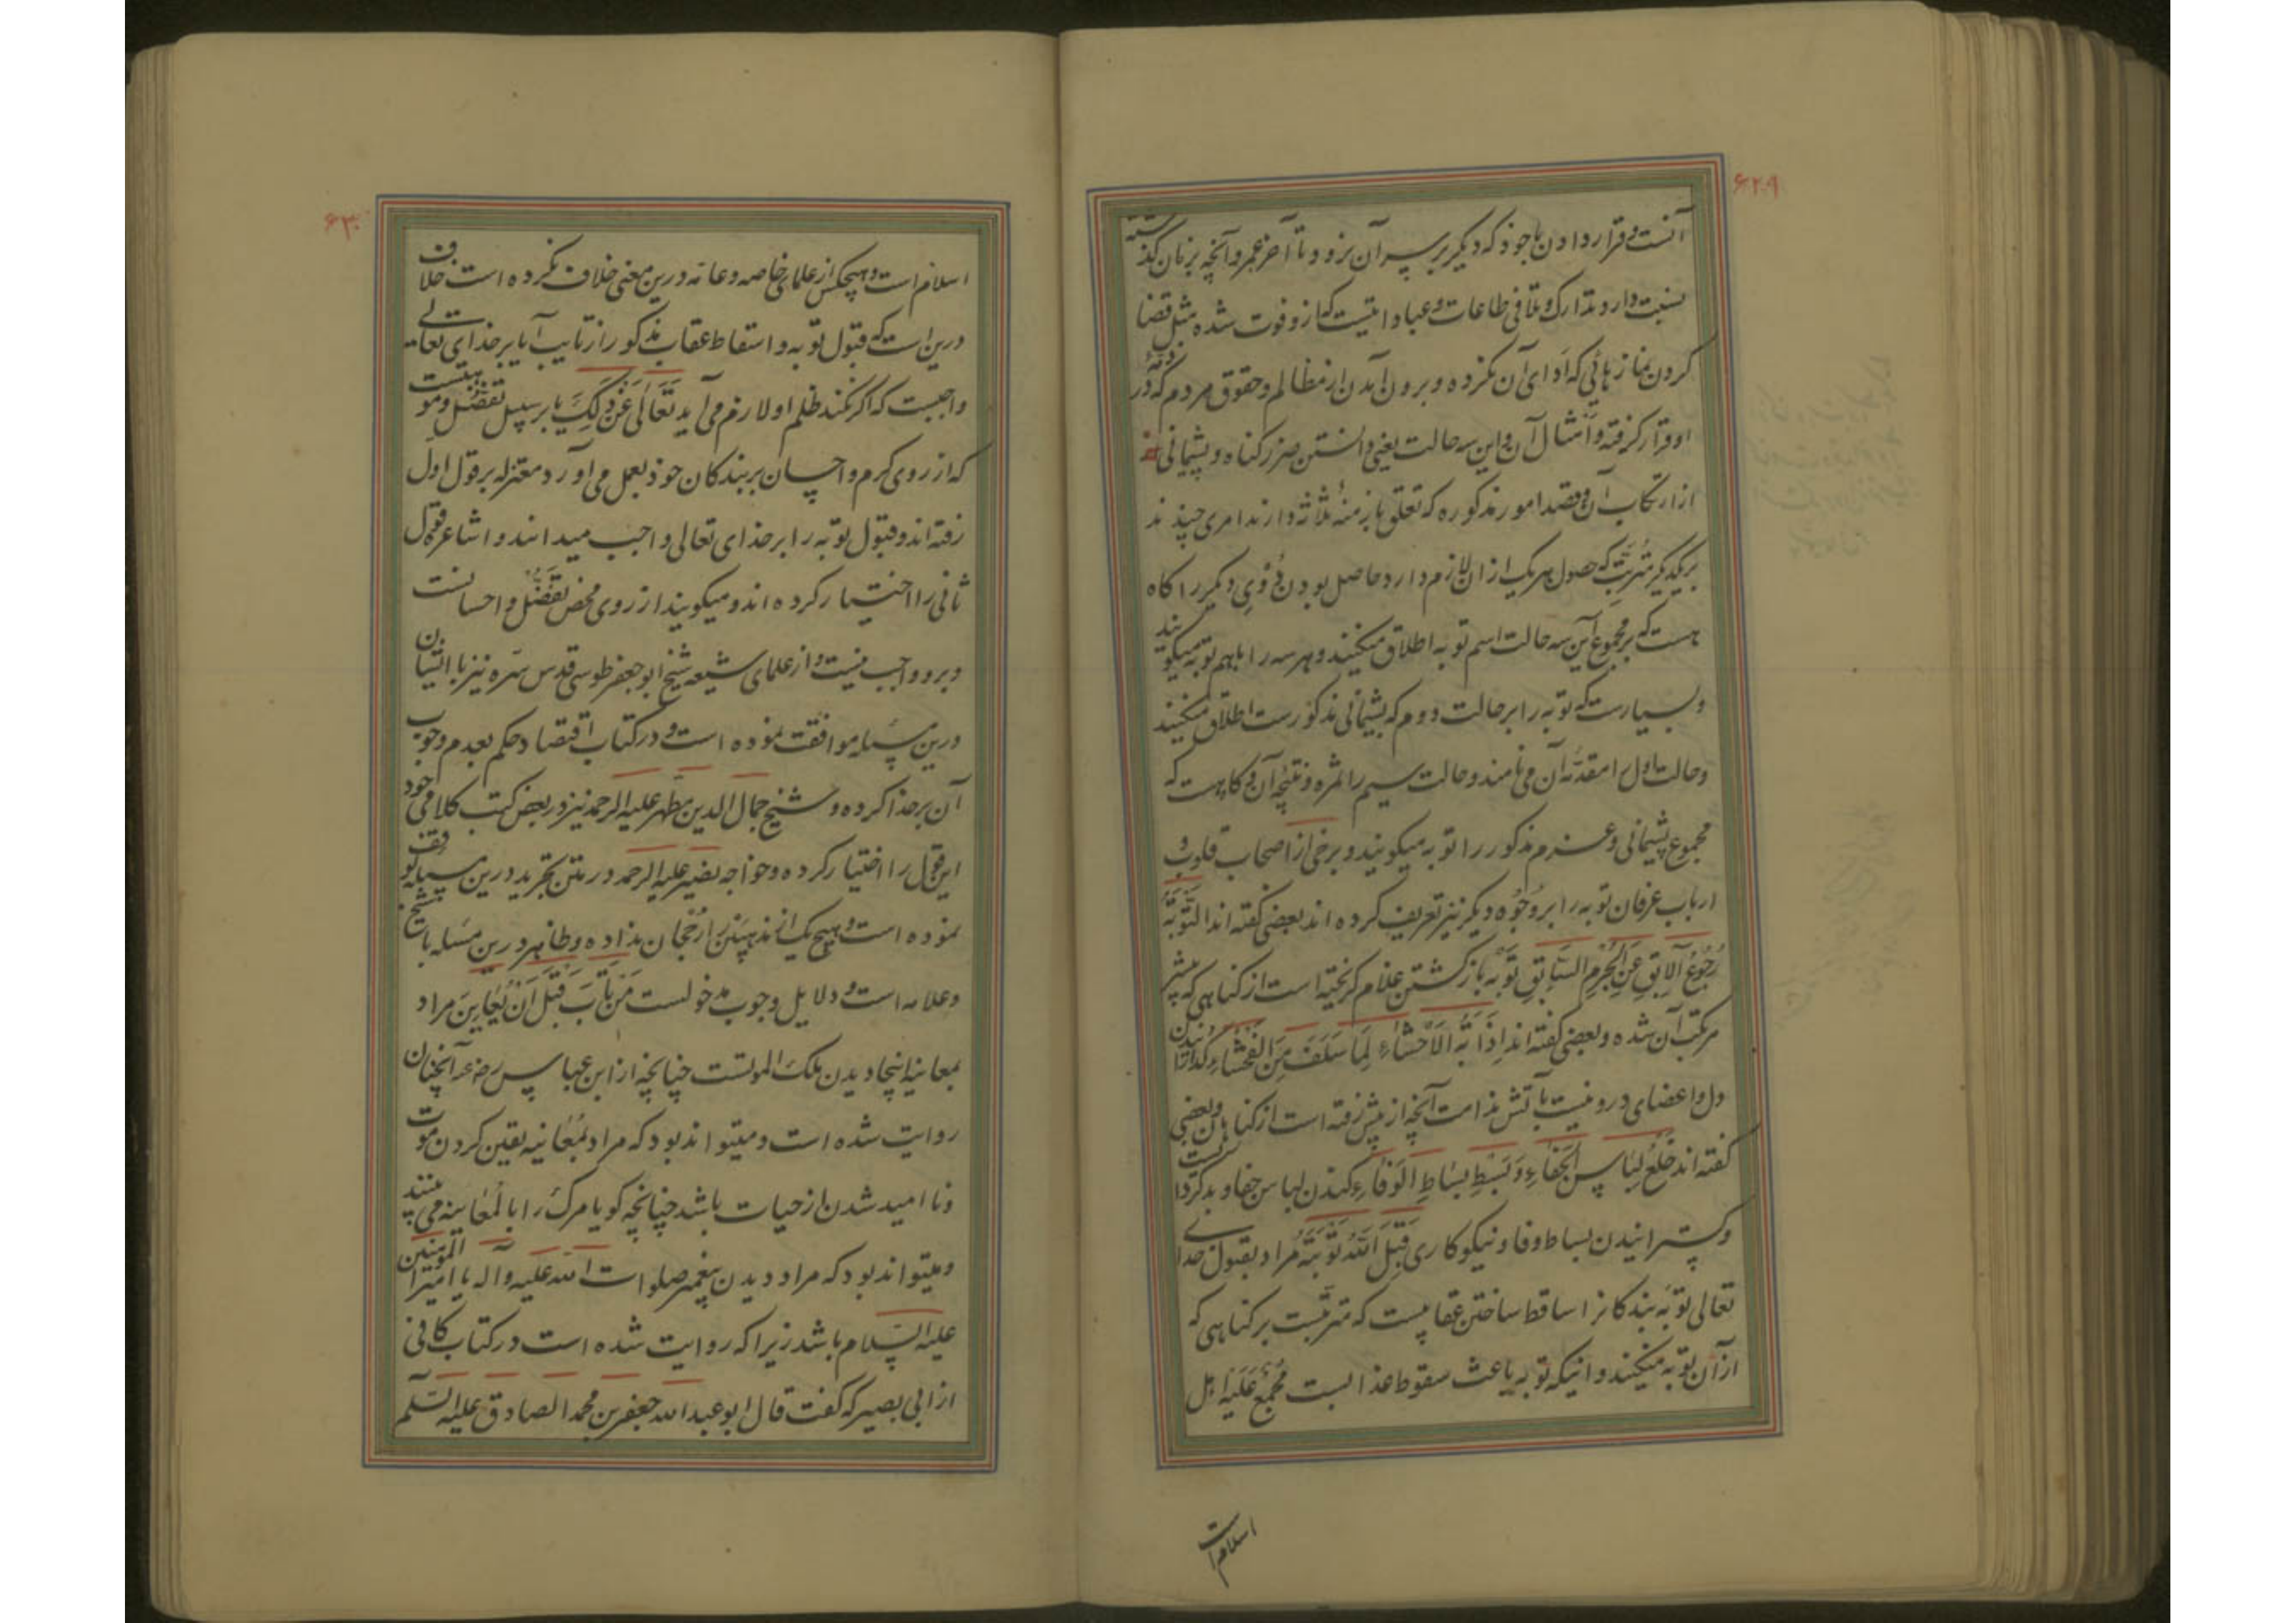 ۶۲۹
آنست و قرار دادن با خود که دیگر بر سر آن نرود تا آخر عمر و آنچه بزمان گذشته
نسبت دارد تدارک و تلافی طاعات و عباداتیست که ازو فوت شده مثل قضا
کردن نمازهائی که ادای آن نکرده و برون آمدن از مظالم و حقوق مردم که در ذمّهٔ
او قرار گرفته و امثال آن و این سه حالت یعنی دانستن ضرر گناه و پشیمانی
از ارتکاب آن و قصد امور مذکوره که تعلق بازمنهٔ ثلاثه دارند امری چندند
بریکدیگر مترتّب که حصول هریک ازان لازم دارد حاصل بودن دُوُیِ دیگر را گاه
هست که بر مجموع این سه حالت اسم توبه اطلاق میکنند و هر سه را باهم توبه میگویند
و بسیارست که توبه را بر حالت دوم که پشیمانی مذکورست اطلاق میکنند
و حالت اول را مقدّمهٔ آن می نامند و حالت سیم را ثمره و نتیجهٔ آن و گاه هست که
مجموع پشیمانی و عزم مذکور را توبه میگویند و برخی از اصحاب قلوب و
ارباب عرفان توبه را بر وُجُوه دیگر نیز تعریف کرده اند بعضی گفته اند التَّوبَةُ
رُجُوعُ الآبِقِ عَنِ الجُرْمِ السَّابِقِ توبه بازگشتن غلام گریخته است از گناهی که پیشتر
مرتکب آن شده و بعضی گفته اند اِذَابَةُ الاَحْشَاءِ لِمَا سَلَفَ مِنَ الفَحْشَاءِ گدازانیدن
دل و اعضای درونیست بآتش ندامت آنچه از پیش رفته است از گناهان و بعضی
گفته اند خَلْعُ لِبَاسِ الجَفَاءِ وَ بَسْطُ بِسَاطِ الوَفَاءِ کندن لباس جفا و بدکرداریست
و گسترانیدن بساط وفا و نیکوکاری قَبِلَ اللهُ تَوْبَتَهُ مُراد بقبول خدای
تعالی توبهٔ بندگانرا ساقط ساختن عقابیست که مترتّبست بر گناهی که
ازآن توبه میکنند و اینکه توبه باعث سقوط عذابست مُجْمَعٌ عَلَیهِ اهل
اسلام است
۶۳۰
اسلام است و هیچکس از علمای خاصه و عامّه درین معنی خلاف نکرده است خلاف
درین است که قبول توبه و اسقاط عقاب مذکور از تایب آیا بر خدای تعالی
واجبست که اگر نکند ظلم او لازم می آید تَعَالَی عَنْ ذَلِکَ یا بر سبیل تفضّل و موهبتست
که از روی کرم و احسان بر بندگان خود بعمل می آورد معتزله بر قول اول
رفته اند و قبول توبه را بر خدای تعالی واجب میدانند و اشاعره قول
ثانی را اختیار کرده اند و میگویند از روی محض تفضّل و احسانست
و برو واجب نیست و از علمای شیعه شیخ ابو جعفر طوسی قدس سّره نیز با ایشان
درین مسئله موافقت نموده است و در کتاب اقتصاد حکم بعدم وجوب
آن بر خدا کرده و شیخ جمال الدین مطهر علیه الرحمه نیز در بعض کتب کلامی خود
این قول را اختیار کرده و خواجه نصیر علیه الرحمه در متن تجرید درین مسئله توقف
نموده است و هیچ یک از مذهبین را رُجحان نداده و ظاهر درین مسئله با شیخ
و علامه است و دلایل وجوب مدخولست مَنْ تَابَ قَبْلَ اَنْ یُعَایِنَ مراد
بمعاینه اینجا دیدن ملک الموتست چنانچه از ابن عباس رضه آنچنان
روایت شده است و میتواند بود که مراد بمُعاینه یقین کردن موت
و نا امید شدن از حیات باشد چنانچه گویا مرگ را بالمُعاینه می بیند
و میتواند بود که مراد دیدن پیغمبر صلوات الله علیه و آله یا امیرالمؤمنین
علیه السلام باشد زیرا که روایت شده است در کتاب کافی
از ابی بصیر که گفت قال ابو عبدالله جعفر بن محمد الصادق علیه السّلم